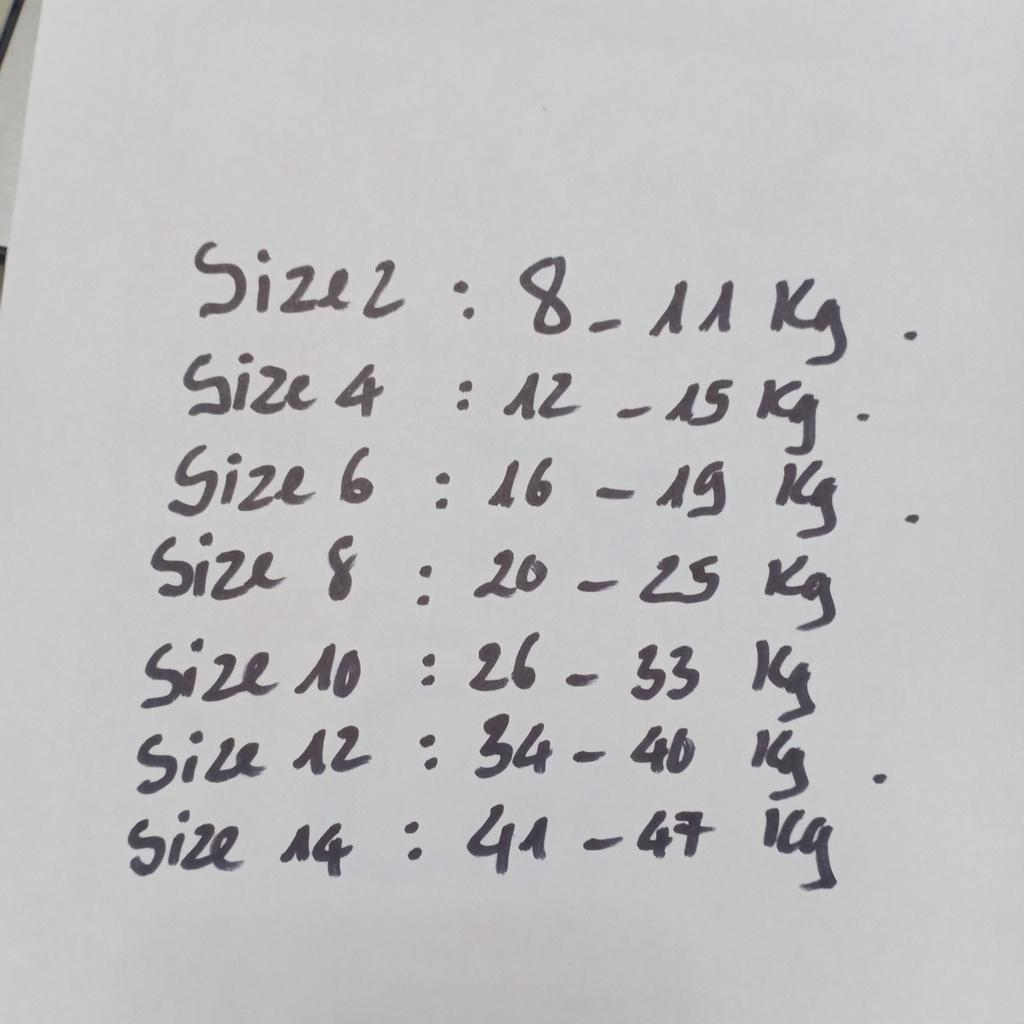 Size 2 : 8 - 11 Kg .
Size 4 : 12 - 15 Kg .
Size 6 : 16 - 19 Kg .
Size 8 : 20 - 25 Kg
Size 10 : 26 - 33 Kg
Size 12 : 34 - 40 Kg .
Size 14 : 41 - 47 Kg